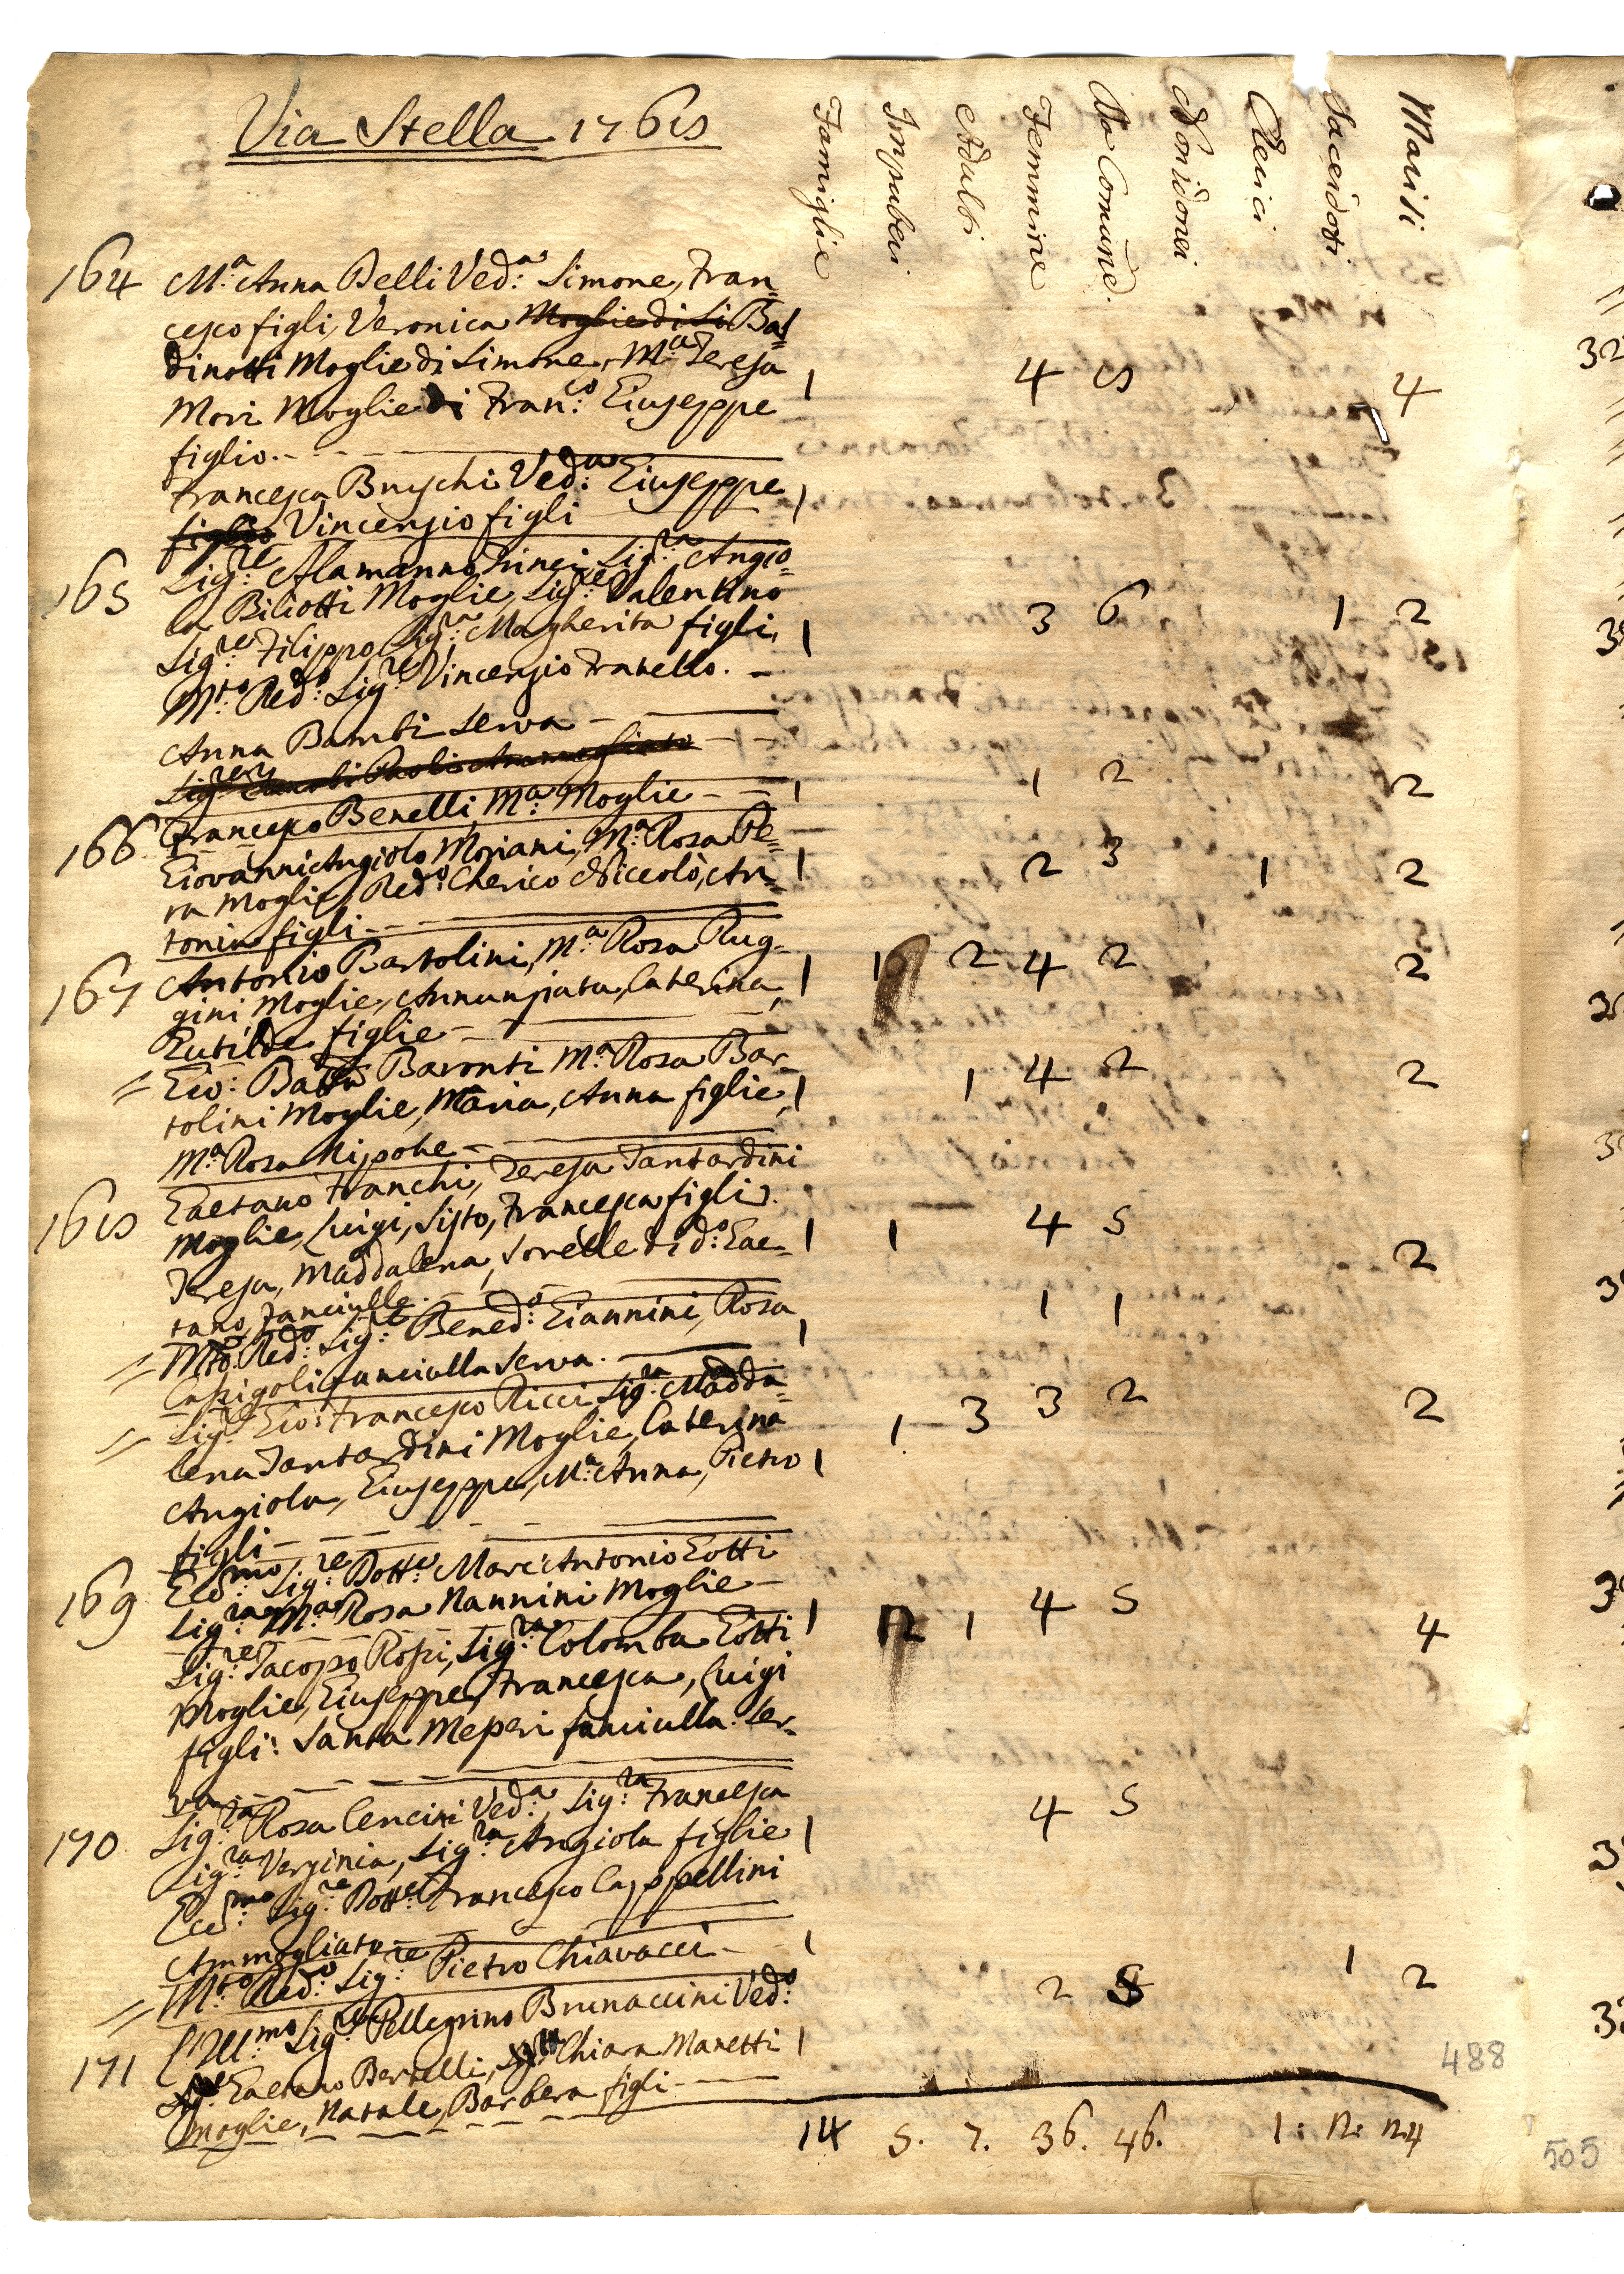 Via Stella 1768
Famiglie Impuberi Adulti Femmine Da Comune. Non idonei Clerici Sacerdoti Mariti
164 M.a Anna Belli Ved.a Simone, Fran=
cesco figli, Veronica Moglie di Si Bal=
dinotti Moglie di Simone, M.a Teresa
Mori Moglie di Fran.co Giuseppe 1 4 8 4
figlio.
Francesca Bruschi Ved.a Giuseppe 1
figlio Vincenzio figli
165 Sig.re Alamanno Finci Sig.ra Angio=
la Biliotti Moglie, Sig.re Valentino
Sig.re Filippo, Sig.ra Margherita figli, 1 3 6 1 2
M.to Red.o Sig.re Vincenzio Fratello.
Anna Bambi Serva
Sig.re
Francesco Benelli, M.a Moglie 1 1 2 2
166 Giovanni Angiolo Moriani, M.a Rosa Pe=
ra Moglie, Red.o Cherico Niccolò, An= 1 2 3 1 2
tonio figli
167 Antonio Bartolini, M.a Rosa Rug=
gini Moglie, Annunziata, Caterina, 1 1 2 4 2 2
Gutilde figlie
= Gio: Batta Baronti M.a Rosa Bar=
tolini Moglie, Maria, Anna figlie, 1 1 4 2 2
M.a Rosa Nipote
168 Gaetano Franchi, Teresa Tantardini
Moglie, Luigi, Sisto, Francesca figli.
Teresa, Maddalena, Sorelle di d.o Gae= 1 1 4 5 2
tano, Fanciulle.
= M.to Red.o Sig.re Bened.o Giannini, Rosa 1 1 1
Capigoli fanciulla Serva.
= Sig.re Gio: Francesco Ricci Sig.ra Madda=
lena Tantardini Moglie, Caterina
Angiola, Giuseppe, M.a Anna, Pietro 1 1 3 3 2 2
figli
169 Ecc.mo Sig.re Dott.e Marc'Antonio Gotti
Sig.ra M.a Rosa Nannini Moglie
Sig.re Jacopo Rossi, Sig.ra Colomba Gotti 1 2 1 4 5 4
Moglie, Giuseppe, Francesca, Luigi
figli: Santa Meperi fanciulla Ser=
va
170 Sig.ra Rosa Cencini Ved.a, Sig.ra Francesca
Sig.ra Verginia, Sig.ra Angiola figlie 1 4 5
Ecc.mo Sig.re Dott.e Francesco Cappellini
Ammogliato
= M.to Red.o Sig.re Pietro Chiavacci 1 1
171 L'Ill.mo Sig.re Pellegrino Brunaccini Ved.o
Gaetano Bertelli, Chiara Manetti 1 2 2
moglie, Natale, Barbera figli
14 5. 7. 36. 46. 1: 2: 24
488
505